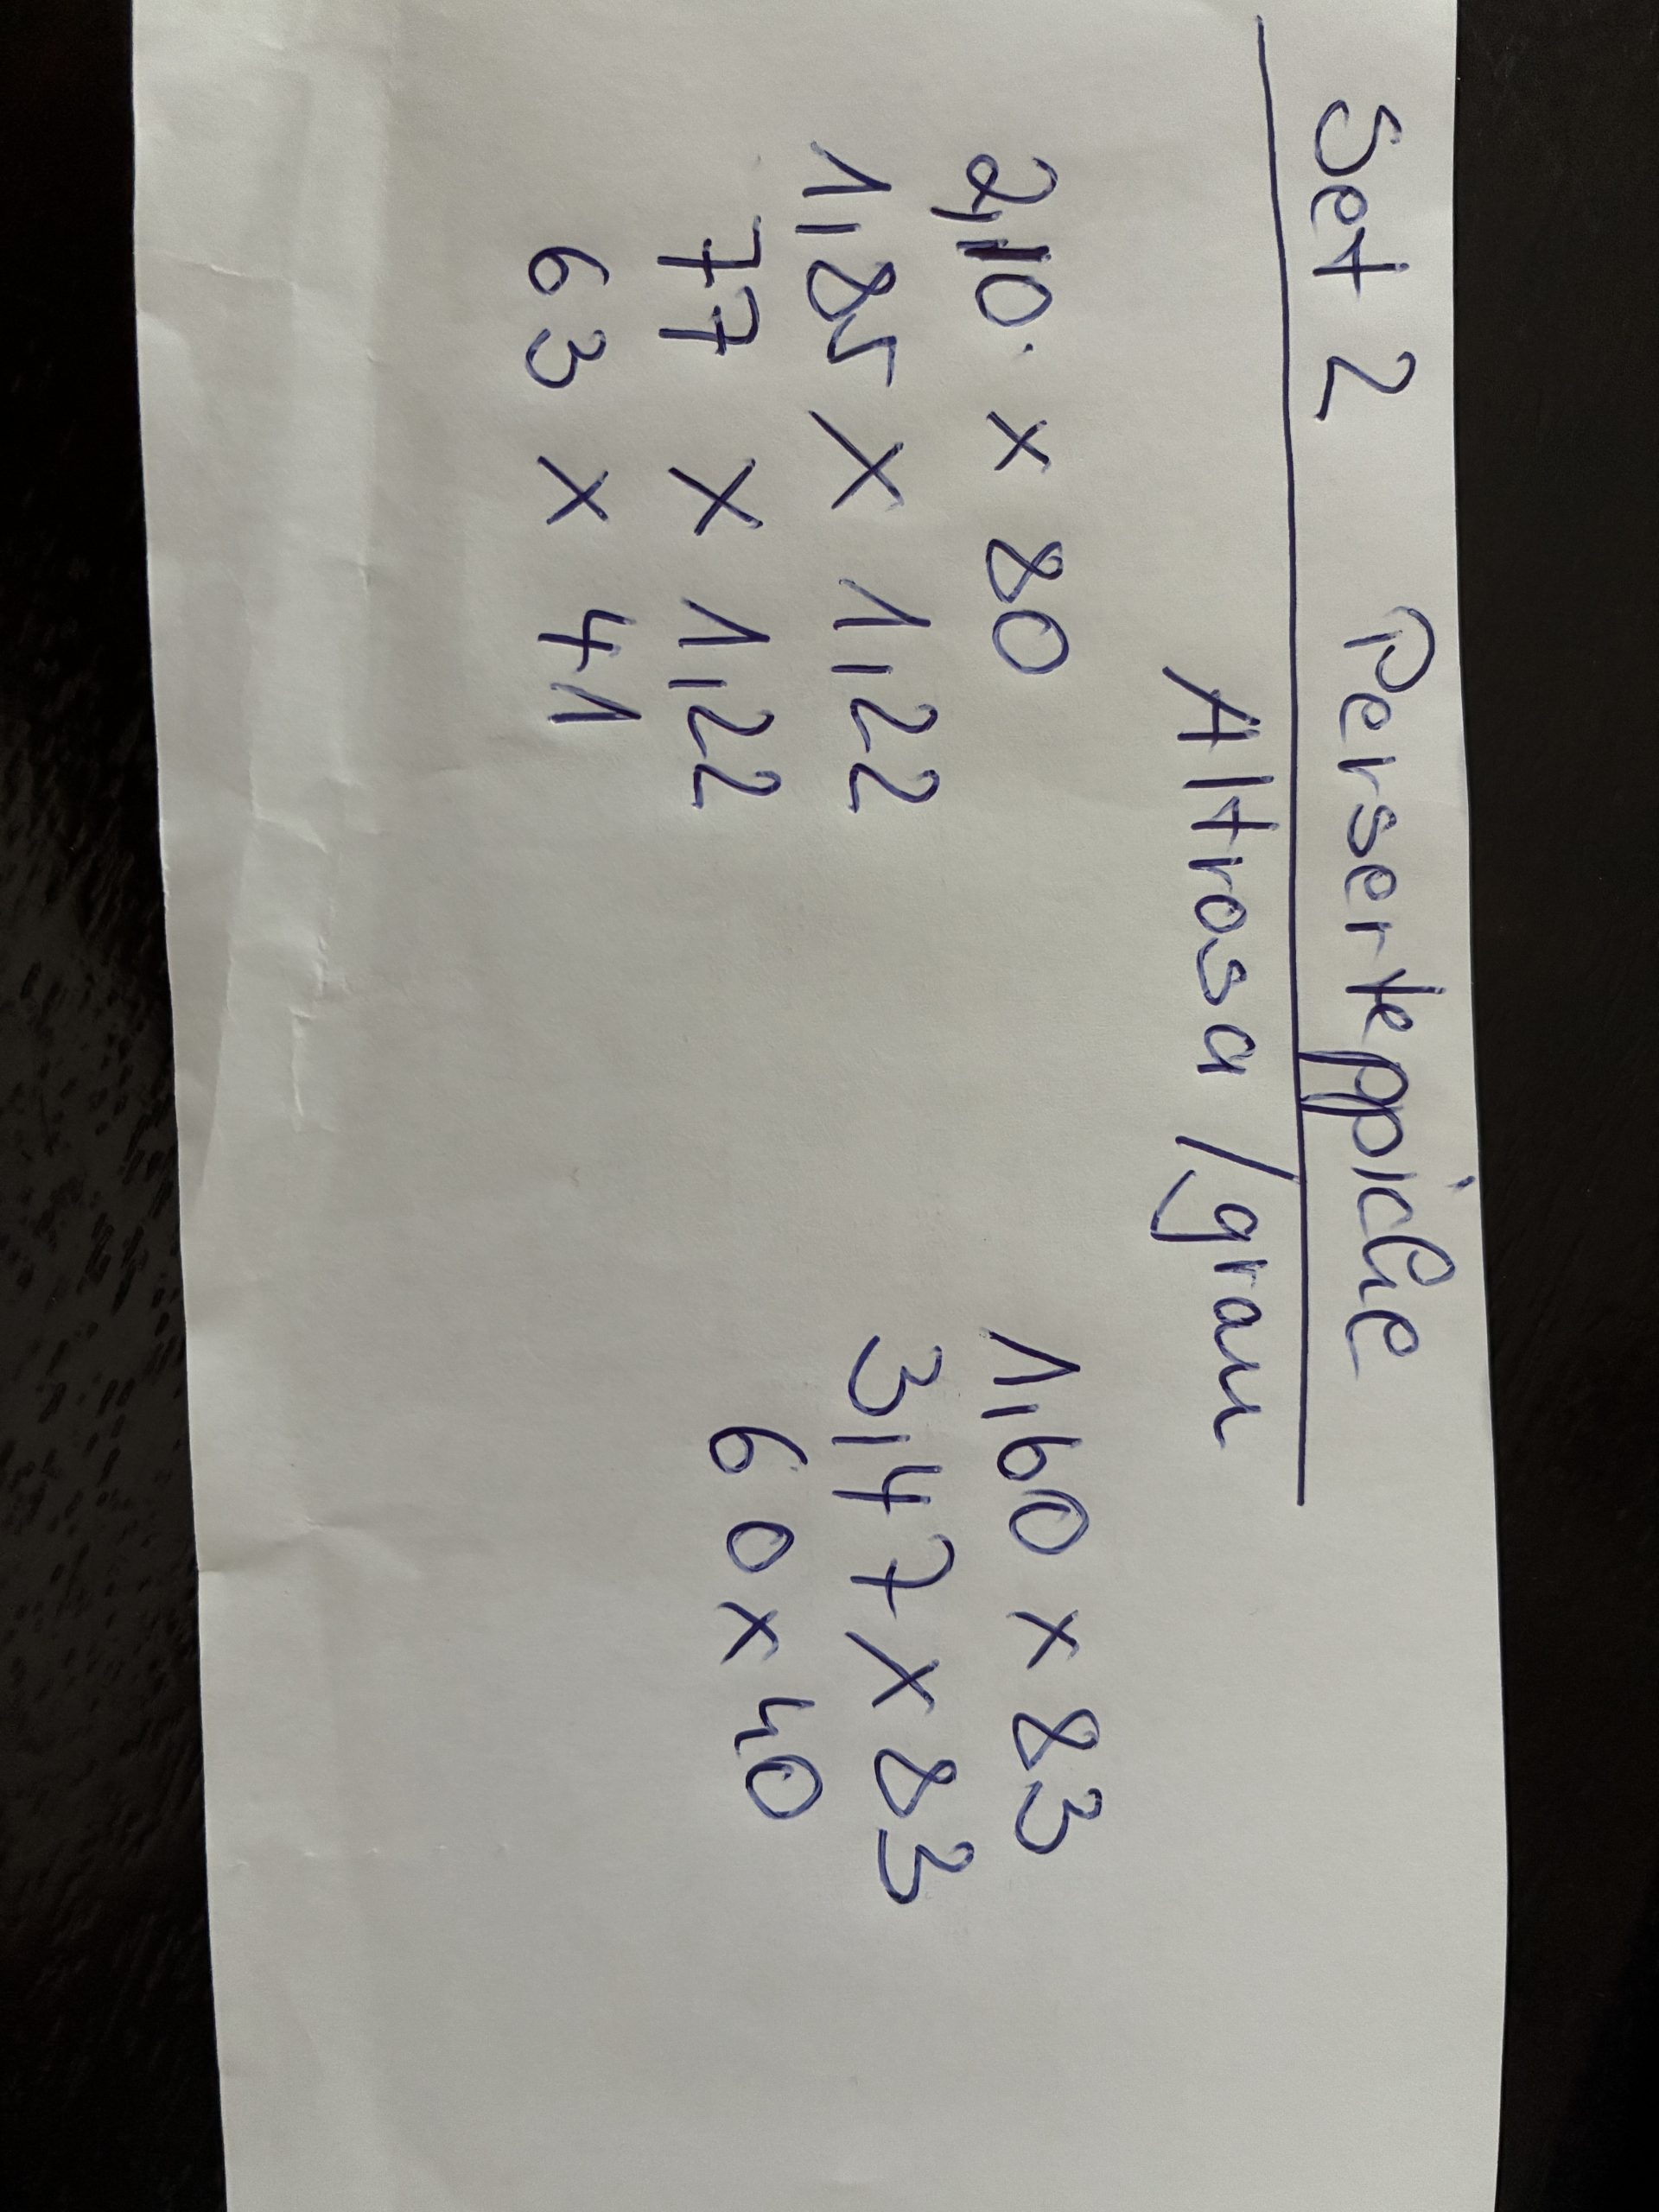 Set 2 Perserteppiche
Altrosa / grau
2,10 x 80
1,85 x 1,22
77 x 1,22
63 x 41
1,60 x 83
3,47 x 83
60 x 40